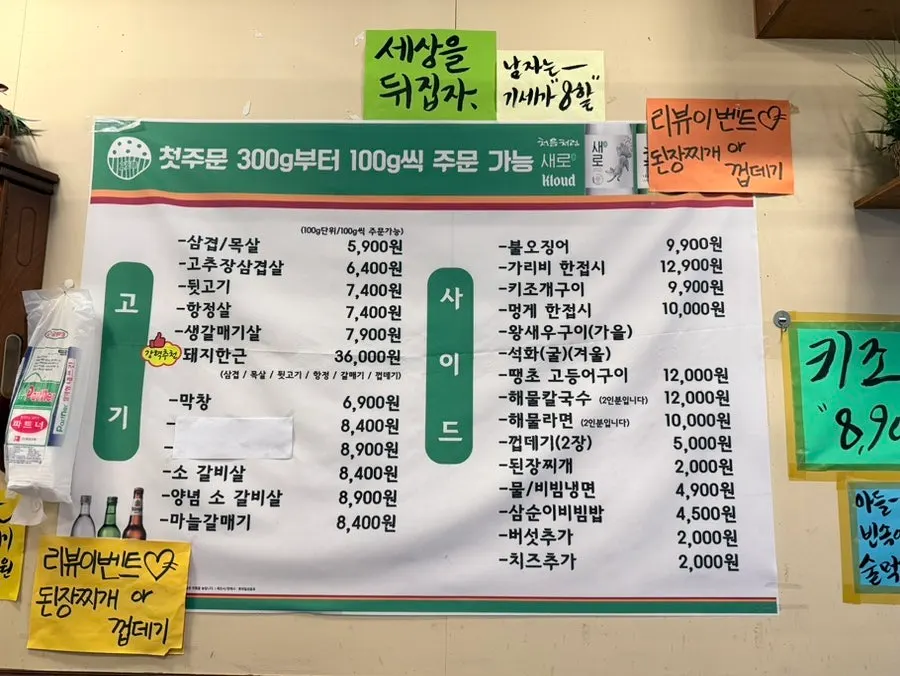 세상을
뒤집자.
남자는 —
기세가 "8할"
리뷰이벤트♡
된장찌개 or
껍데기
첫주문 300g부터 100g씩 주문 가능
처음처럼
새로
Kloud
새로
(100g단위/100g씩 주문가능)
고기
-삼겹/목살 5,900원
-고추장삼겹살 6,400원
-뒷고기 7,400원
-항정살 7,400원
-생갈매기살 7,900원
강력추천
돼지한근 36,000원
(삼겹 / 목살 / 뒷고기 / 항정 / 갈매기 / 껍데기)
-막창 6,900원
- 8,400원
- 8,900원
-소 갈비살 8,400원
-양념 소 갈비살 8,900원
-마늘갈매기 8,400원
사이드
-불오징어 9,900원
-가리비 한접시 12,900원
-키조개구이 9,900원
-멍게 한접시 10,000원
-왕새우구이(가을)
-석화(굴)(겨울)
-땡초 고등어구이 12,000원
-해물칼국수 (2인분입니다) 12,000원
-해물라면 (2인분입니다) 10,000원
-껍데기(2장) 5,000원
-된장찌개 2,000원
-물/비빔냉면 4,900원
-삼순이비빔밥 4,500원
-버섯추가 2,000원
-치즈추가 2,000원
키조
"8,90
아들
빈속에
술먹
파트너
리뷰이벤트♡
된장찌개 or
껍데기